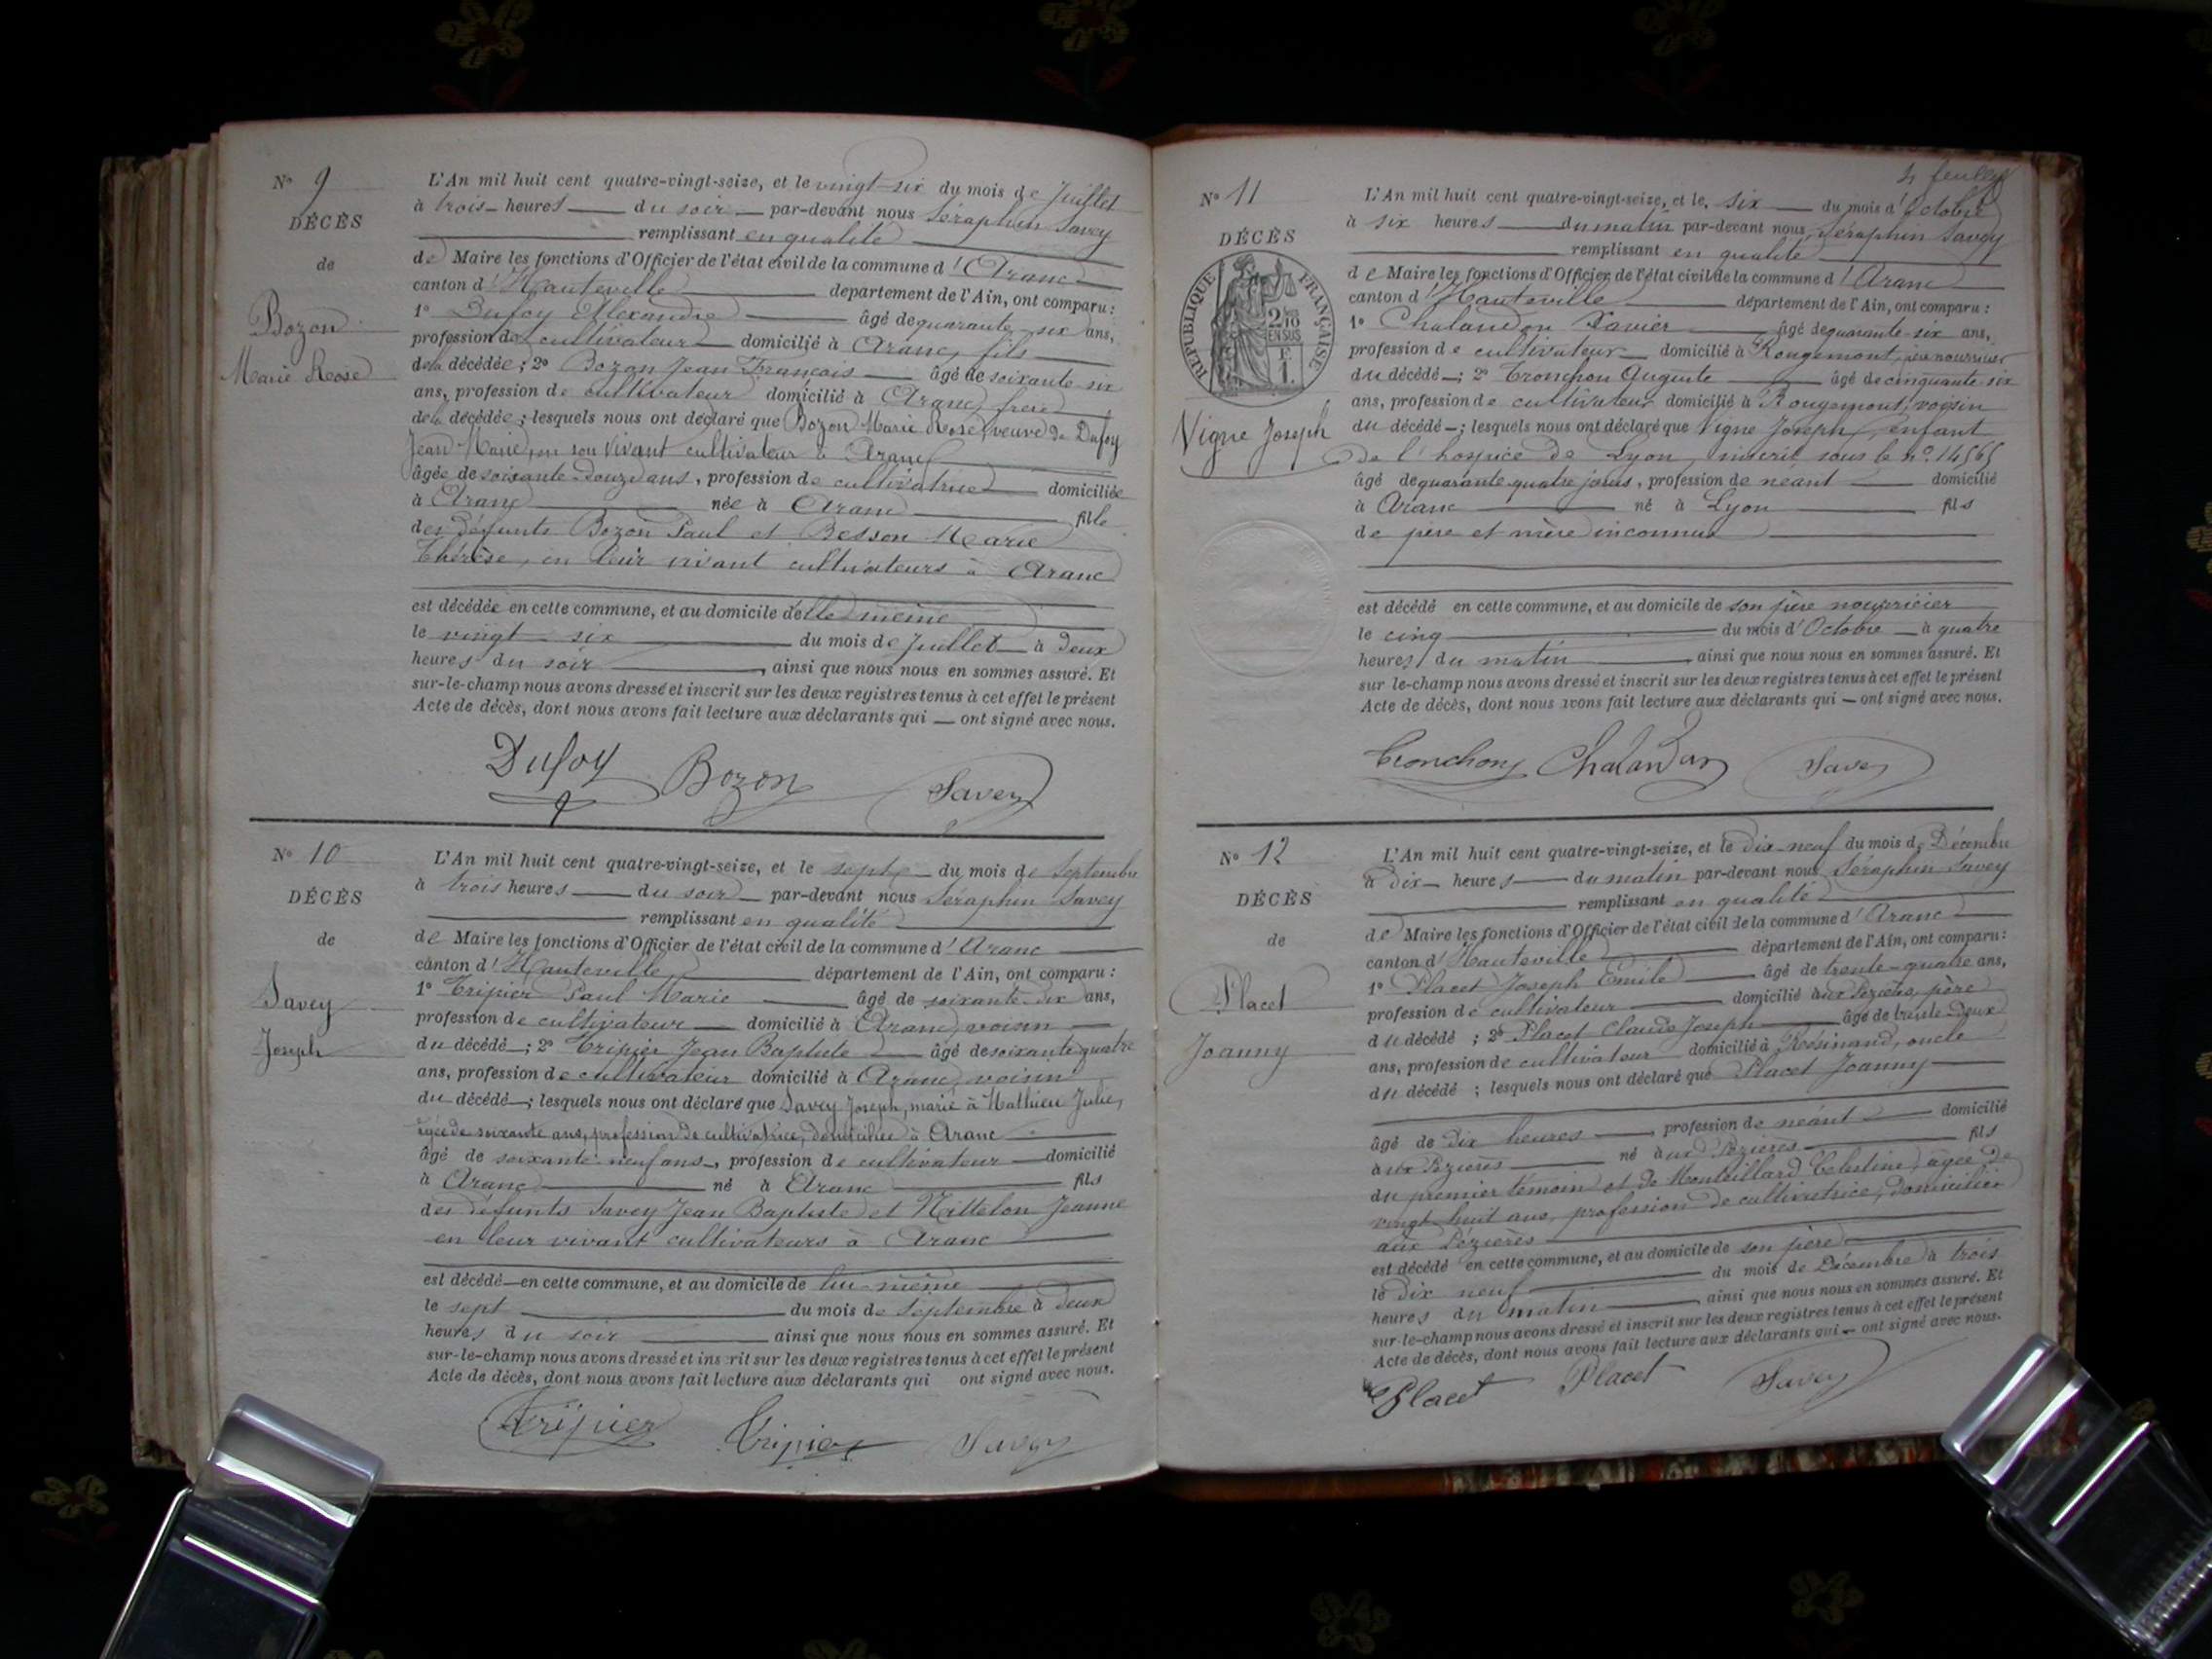 N° 9
DÉCÈS
de
Bozon
Marie Rose
L'An mil huit cent quatre-vingt-seize, et le vingt-six du mois de Juillet
à trois heures du soir par-devant nous Séraphin Savey
remplissant en qualité
de Maire les fonctions d'Officier de l'état civil de la commune d'Aranc
canton d'Hauteville département de l'Ain, ont comparu :
1° Dufoy Alexandre âgé de quarante six ans,
profession de cultivateur domicilié à Aranc, fils
de la décédée ; 2° Bozon Jean François âgé de soixante six
ans, profession de cultivateur domicilié à Aranc, frère
de la décédée ; lesquels nous ont déclaré que Bozon Marie Rose, veuve de Dufoy
Jean Marie, en son vivant cultivateur à Aranc
âgée de soixante douze ans, profession de cultivatrice domiciliée
à Aranc née à Aranc fille
des défunts Bozon Paul et Besson Marie
Thérèse, en leur vivant cultivateurs à Aranc
est décédée en cette commune, et au domicile d'elle même
le vingt six du mois de Juillet à deux
heures du soir, ainsi que nous nous en sommes assuré. Et
sur-le-champ nous avons dressé et inscrit sur les deux registres tenus à cet effet le présent
Acte de décès, dont nous avons fait lecture aux déclarants qui — ont signé avec nous.
Dufoy Bozon Savey
N° 10
DÉCÈS
de
Savey
Joseph
L'An mil huit cent quatre-vingt-seize, et le sept du mois de Septembre
à trois heures du soir par-devant nous Séraphin Savey
remplissant en qualité
de Maire les fonctions d'Officier de l'état civil de la commune d'Aranc
canton d'Hauteville département de l'Ain, ont comparu :
1° Tripier Paul Marie âgé de soixante-dix ans,
profession de cultivateur domicilié à Aranc, voisin
du décédé ; 2° Tripier Jean Baptiste âgé de soixante quatre
ans, profession de cultivateur domicilié à Aranc, voisin
du décédé ; lesquels nous ont déclaré que Savey Joseph, marié à Mathieu Julie,
âgée de soixante ans, profession de cultivatrice, domiciliée à Aranc
âgé de soixante-neuf ans, profession de cultivateur domicilié
à Aranc né à Aranc fils
des défunts Savey Jean Baptiste et Mittelon Jeanne
en leur vivant cultivateurs à Aranc
est décédé en cette commune, et au domicile de lui-même
le sept du mois de Septembre à deux
heures du soir ainsi que nous nous en sommes assuré. Et
sur-le-champ nous avons dressé et inscrit sur les deux registres tenus à cet effet le présent
Acte de décès, dont nous avons fait lecture aux déclarants qui ont signé avec nous.
Tripier Tripier Savey
N° 11
DÉCÈS
RÉPUBLIQUE FRANÇAISE
2/10 EN SUS
F. 1.
Vigne Joseph
L'An mil huit cent quatre-vingt-seize, et le, six du mois d'Octobre
à six heures du matin par-devant nous, Séraphin Savey
remplissant en qualité
de Maire les fonctions d'Officier de l'état civil de la commune d'Aranc
canton d'Hauteville département de l'Ain, ont comparu :
1° Chalandon Xavier âgé de quarante-six ans,
profession de cultivateur domicilié à Rougemont, père nourricier
du décédé ; 2° Tronchon Auguste âgé de cinquante-six
ans, profession de cultivateur domicilié à Rougemont, voisin
du décédé ; lesquels nous ont déclaré que Vigne Joseph, enfant
de l'hospice de Lyon, inscrit sous le n°. 14565
âgé de quarante quatre jours, profession de néant domicilié
à Aranc né à Lyon fils
de père et mère inconnus
est décédé en cette commune, et au domicile de son père nourricier
le cinq du mois d'Octobre à quatre
heures du matin, ainsi que nous nous en sommes assuré. Et
sur-le-champ nous avons dressé et inscrit sur les deux registres tenus à cet effet le présent
Acte de décès, dont nous avons fait lecture aux déclarants qui — ont signé avec nous.
Tronchon Chalandon Savey
N° 12
DÉCÈS
de
Placet
Joanny
L'An mil huit cent quatre-vingt-seize, et le dix-neuf du mois de Décembre
à dix heures du matin par-devant nous Séraphin Savey
remplissant en qualité
de Maire les fonctions d'Officier de l'état civil de la commune d'Aranc
canton d'Hauteville département de l'Ain, ont comparu :
1° Placet Joseph Emile âgé de trente-quatre ans,
profession de cultivateur domicilié aux Pézières, père
du décédé ; 2° Placet Claude Joseph âgé de trente-deux
ans, profession de cultivateur domicilié à Résinand, oncle
du décédé ; lesquels nous ont déclaré que Placet Joanny
âgé de dix heures profession de néant domicilié
aux Pezières né aux Pezières fils
du premier témoin et de Montillard Célestine, âgée de
vingt huit ans, profession de cultivatrice, domiciliée
aux Pézières
est décédé en cette commune, et au domicile de son père
le dix neuf du mois de Décembre à trois
heures du matin, ainsi que nous nous en sommes assuré. Et
sur-le-champ nous avons dressé et inscrit sur les deux registres tenus à cet effet le présent
Acte de décès, dont nous avons fait lecture aux déclarants qui — ont signé avec nous.
Placet Placet Savey